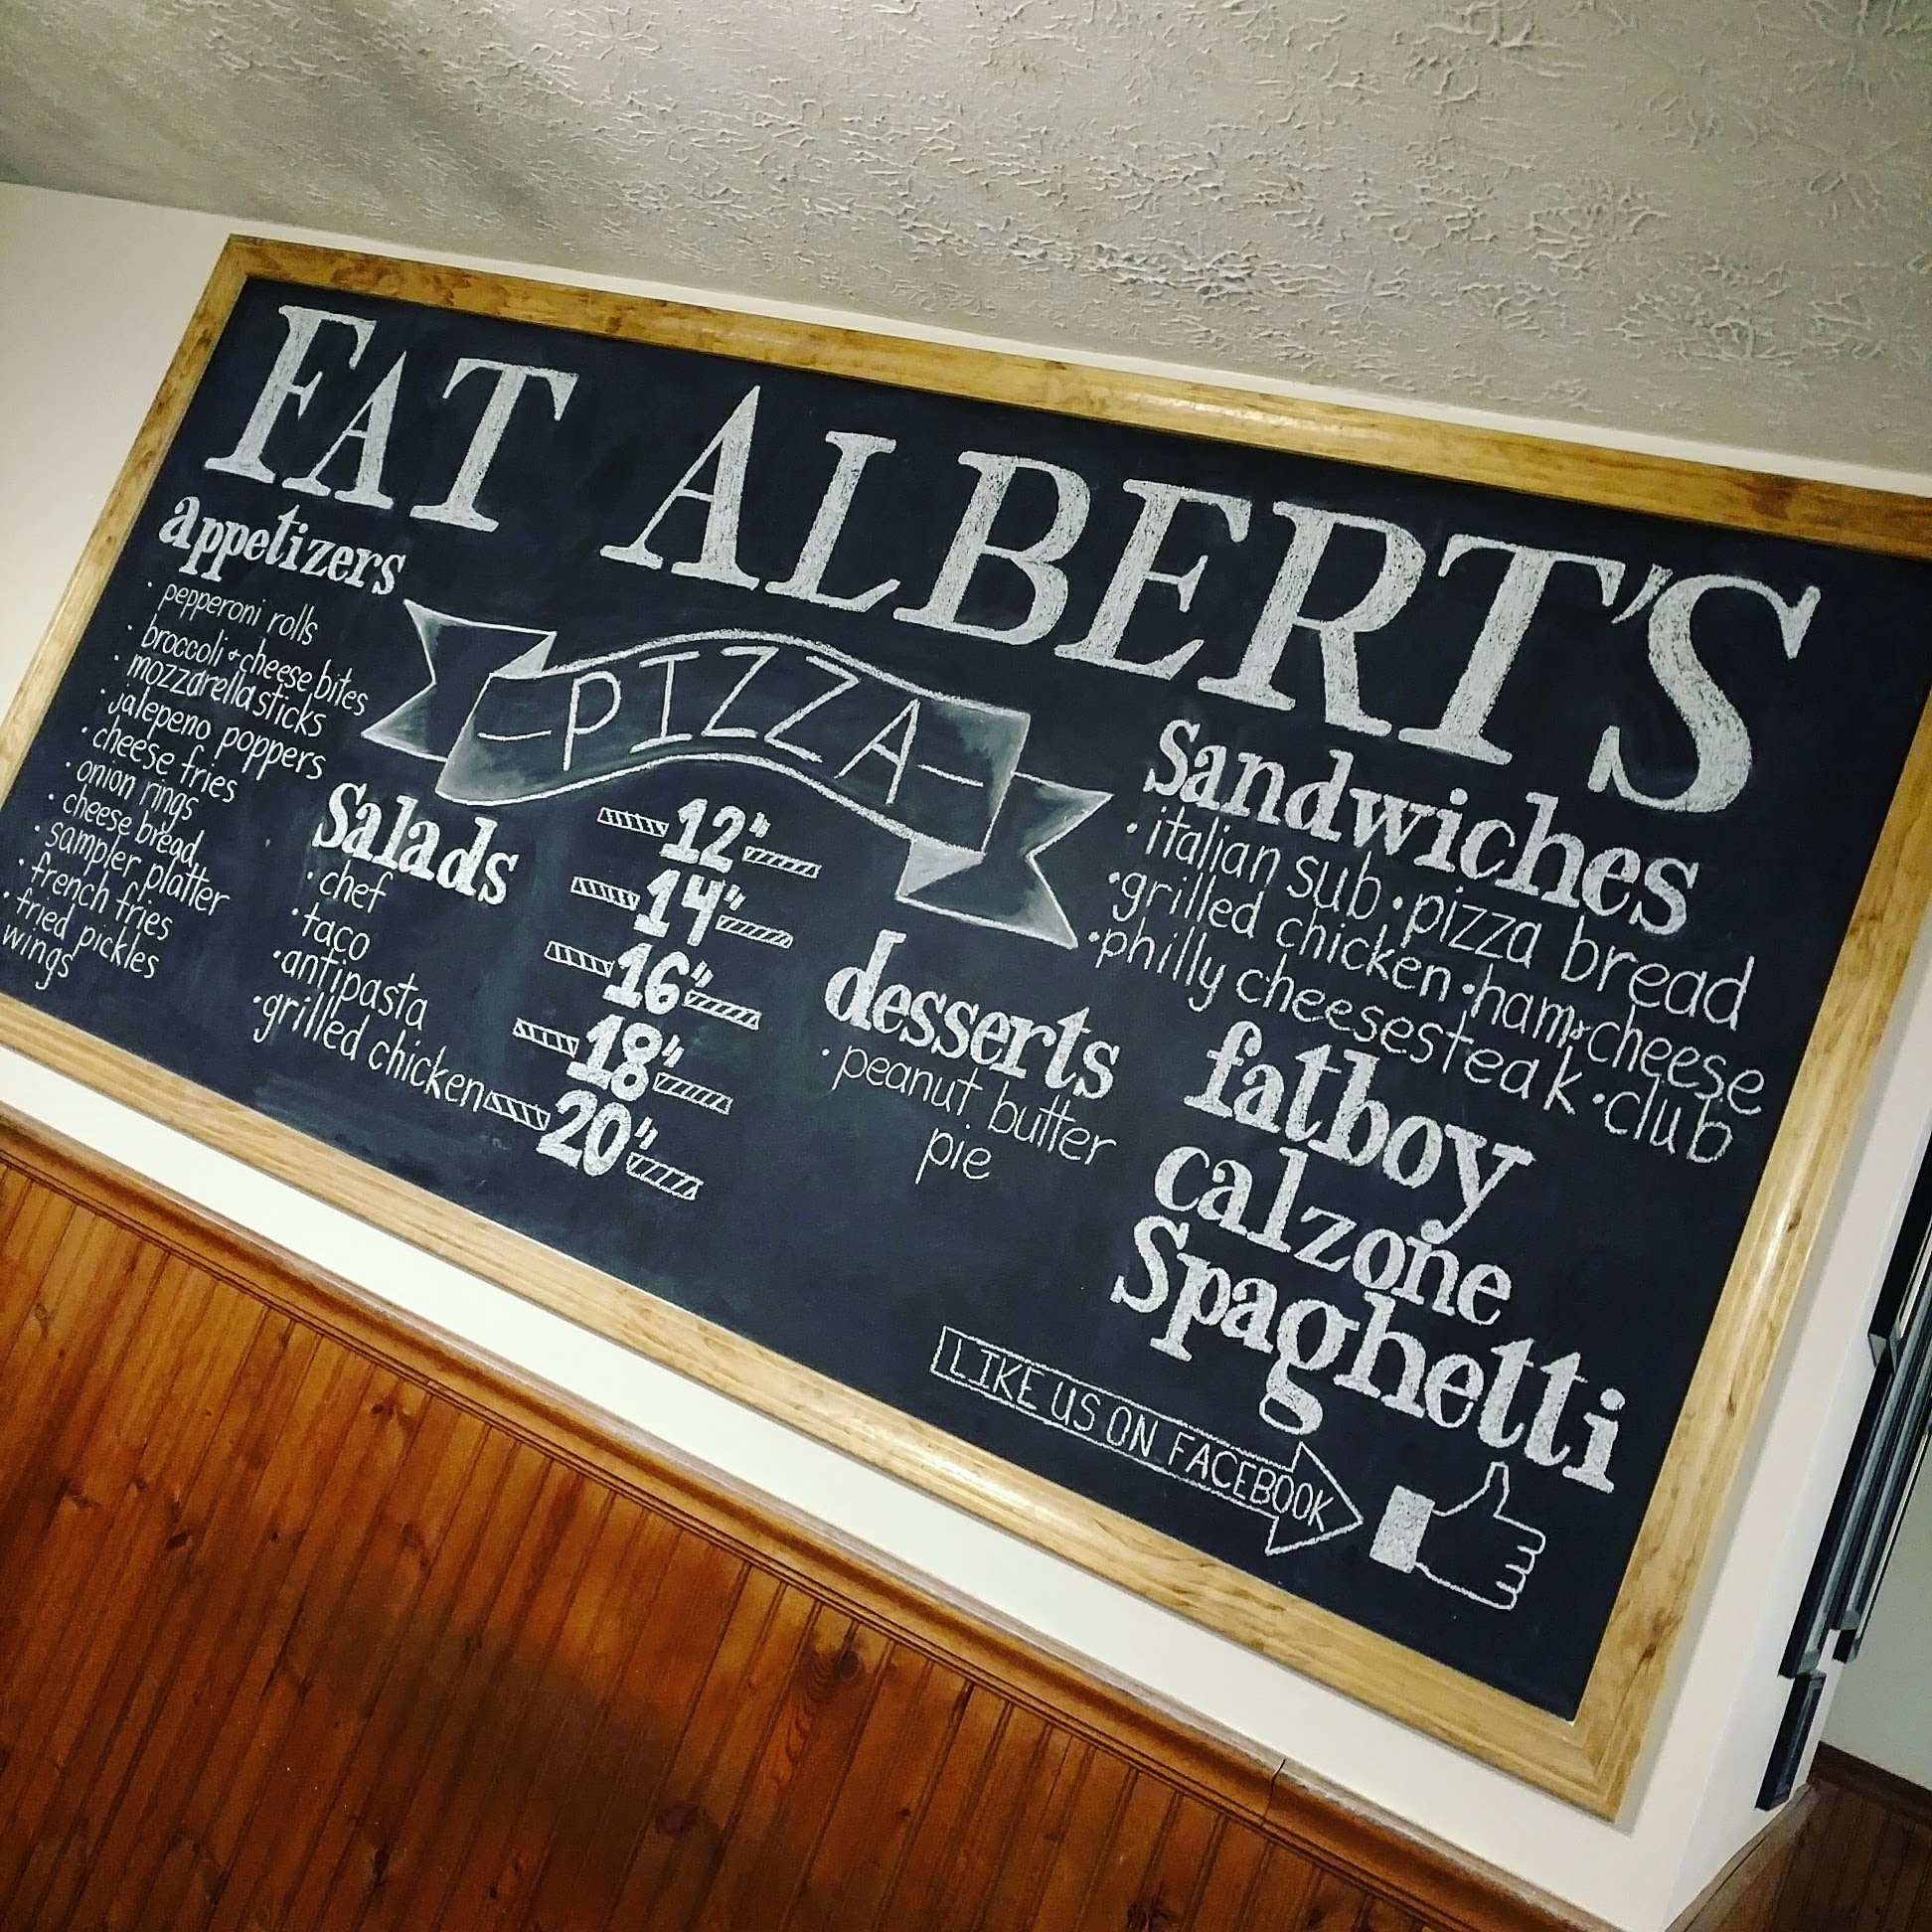 FAT ALBERT'S
appetizers
· pepperoni rolls
· broccoli + cheese bites
· mozzarella sticks
· jalepeno poppers
· cheese fries
· onion rings
· cheese bread
· sampler platter
· french fries
· fried pickles
wings
Salads
· chef
· taco
· antipasta
· grilled chicken
PIZZA
12"
14"
16"
18"
20"
desserts
· peanut butter
pie
Sandwiches
· italian sub · pizza bread
· grilled chicken · ham & cheese
· philly cheesesteak · club
fatboy
calzone
Spaghetti
LIKE US ON FACEBOOK